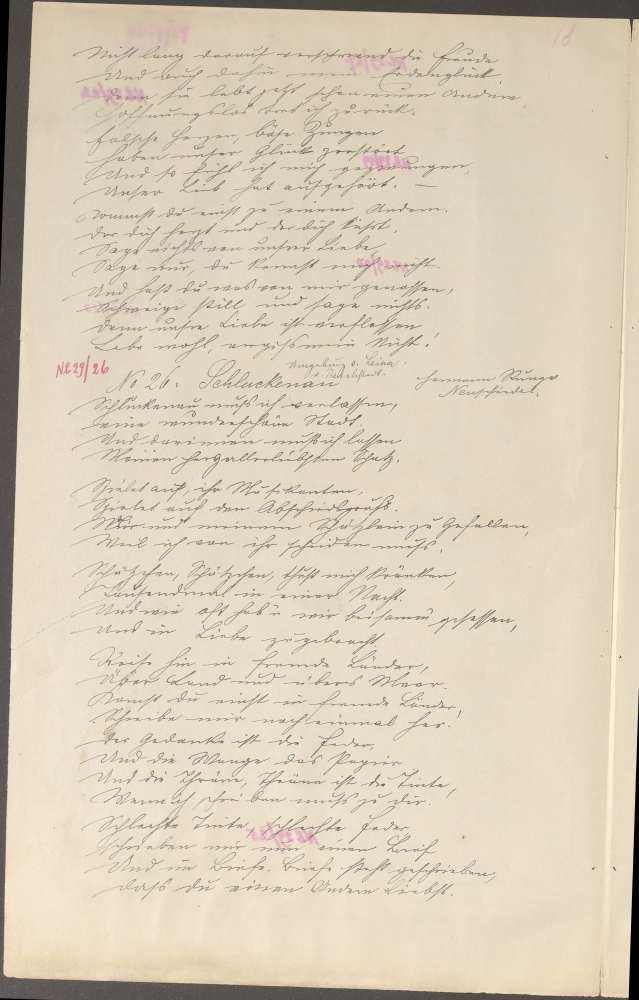 18
Nicht lang darauf verschwand die Freude
Und auch dahin mein Erdenglück.
Denn sie lebt jetzt schon einem Andern
Hoffnungslos trat ich zurück.
Falsche Herzen, böse Zungen
Haben unser Glück zerstört
Und so fühl ich mich gezwungen,
Unser Lieb hat aufgehört. —
Kommst du einst zu einem Andern.
Der dich herzt und der dich küsst.
Sage nichts von unsrer Liebe
Sage nur, du kennst mich nicht.
Und hast du was von mir genossen,
Schweige still und sage nichts.
Denn unsre Liebe ist verflossen
Lebe wohl, vergissmein Nicht!
Nr 29/26
No 26. Schluckenau
Umgebung v. Leina.
Hermann Runge
Schluckenau muss ich verlassen,
Deine wunderschöne Stadt.
Und darinnen muss ich lassen
Meinen herzallerliebsten Schatz.
Spielet auf, ihr Musikanten,
Spielet auf den Abschiedsgruss.
Mir und meinem Schätzlein zu Gefallen,
Weil ich von ihr scheiden muss.
Schätzchen, Schätzchen, thust mich kränken,
Tausendmal in einer Nacht.
Und wie oft hab'n wir beisamm gesessen,
Und in Liebe zugebracht
Reise hin in fremde Länder,
Über Land und übers Meer.
Kommst du einst in fremde Länder,
Schreibe mir noch einmal her.
Der Gedanke ist die Feder,
Und die Wange das Papier
Und die Thräne, Thräne ist die Tinte,
Wenn ich schreiben muss zu dir.
Schlechte Tinte, schlechte Feder
Schrieben mir nun einen Brief
Und im Briefe, Briefe steht geschrieben,
Dass du einen Andern liebst.